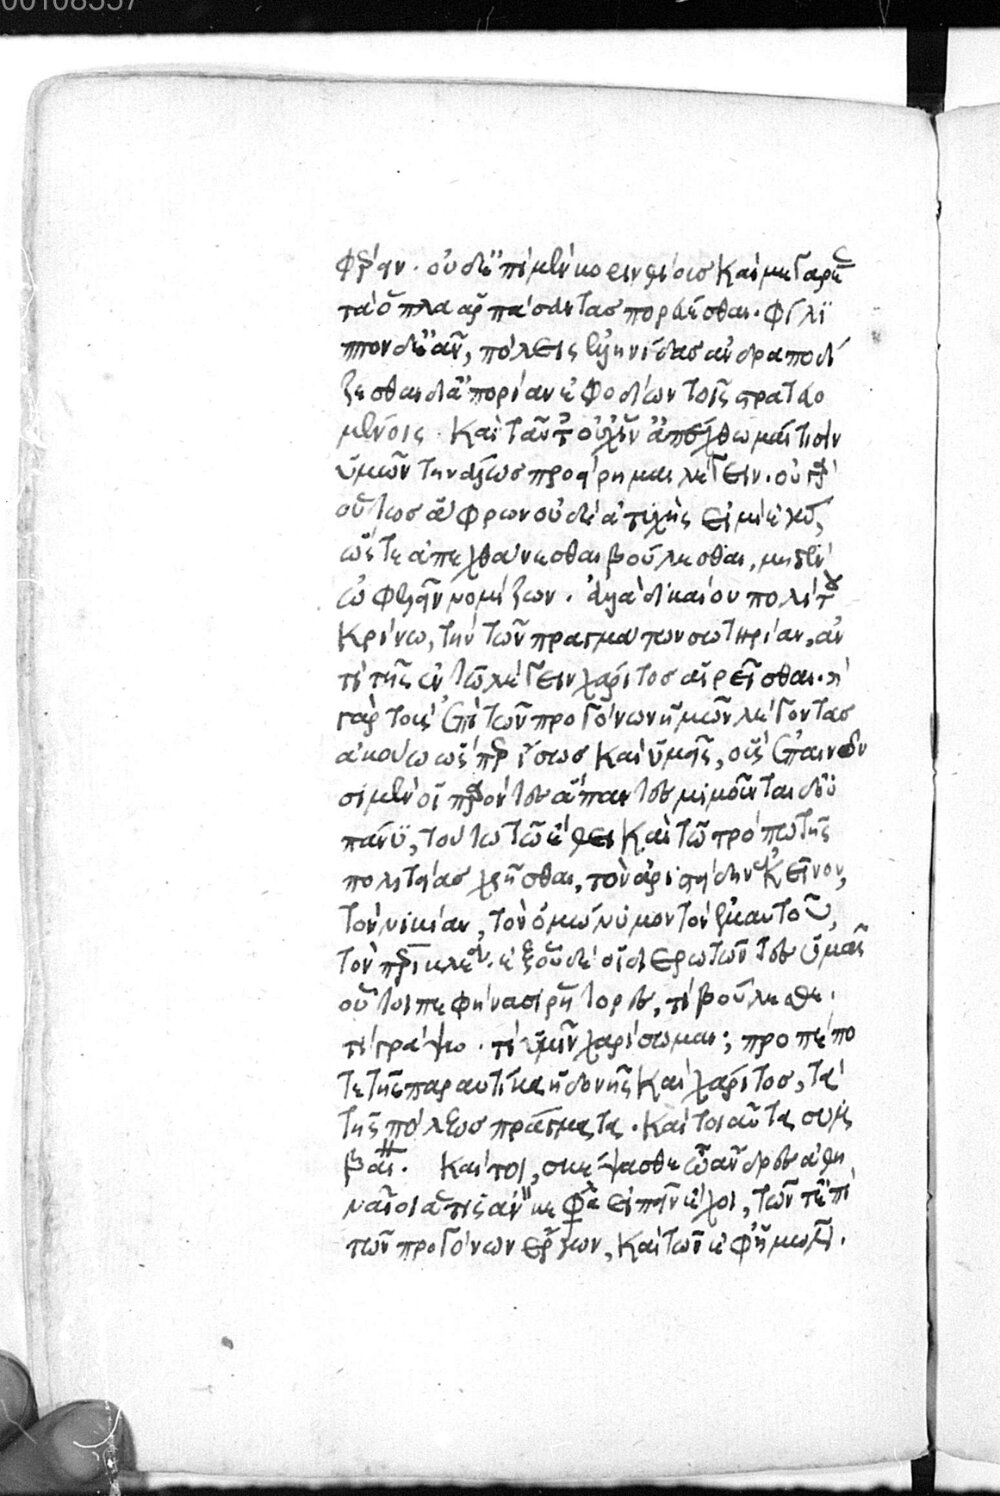 φέρειν. οὐδ' ἐπὶ μὲν κορινθίους καὶ μεγαρέας
τὰ ὅπλα ἁρπάσαντας πορεύεσθαι. φίλι
ππον δ' ἐᾶν, πόλεις ἑλληνίδας ἀνδραποδί
ζεσθαι δι' ἀπορίαν ἐφοδίων τοῖς στρατευο
μένοις. καὶ ταῦτ' οὐχ ἵν' ἀπέλθωμαί τισιν
ὑμῶν τηνάλλως προῄρημαι λέγειν. οὐ γὰρ
οὕτως ἄφρων οὐδὲ ἀτυχής εἰμι ἐγὼ,
ὥστε ἀπεχθάνεσθαι βούλεσθαι, μηδὲν
ὠφελεῖν νομίζων. ἀλλὰ δικαίου πολίτου
κρίνω, τὴν τῶν πραγμάτων σωτηρίαν, ἀν
τὶ τῆς ἐν τῷ λέγειν χάριτος αἱρεῖσθαι. καὶ
γὰρ τοὺς ἐπὶ τῶν προγόνων ἡμῶν λέγοντας
ἀκούω ὥσπερ ἴσως καὶ ὑμεῖς, οὓς ἐπαινοῦ
σι μὲν οἱ παριόντες ἅπαντες μιμοῦνται δ' οὐ
πάνυ, τούτῳ τῷ ἔθει καὶ τῷ τρόπῳ τῆς
πολιτείας χρῆσθαι, τὸν ἀριστείδην ἐκεῖνον,
τὸν νικίαν, τὸν ὁμώνυμον τὸν ἐμαυτοῦ,
τὸν περικλέα. ἐξ οὗ δὲ οἱ διερωτῶντες ὑμᾶς
οὗτοι πεφήνασι ῥήτορες, τί βούλεσθε.
τί γράψω. τί ὑμῖν χαρίσωμαι; προπέπο
ται τῆς παραυτίκα ἡδονῆς καὶ χάριτος, τὰ
τῆς πόλεως πράγματα. καὶ τοιαῦτα συμ
βαίνει. καίτοι, σκέψασθε ὦ ἄνδρες ἀθη
ναῖοι ἅ τις ἂν κεφάλαια εἰπεῖν ἔχοι, τῶν τ' ἐπὶ
τῶν προγόνων ἔργων, καὶ τῶν ἐφ' ἡμῶν.